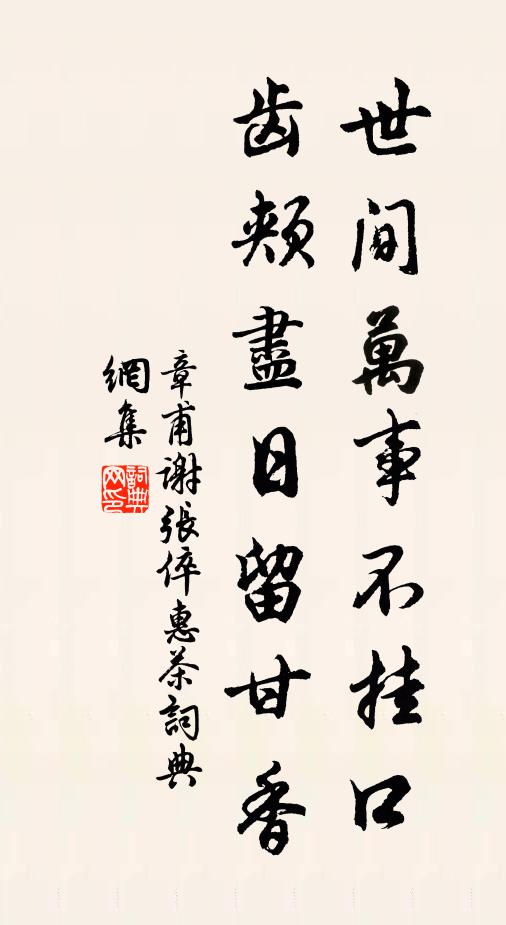 世间萬事不挂口
齿颊盡日留甘香
章甫谢張倅惠茶詞典
網集
詞典
网印